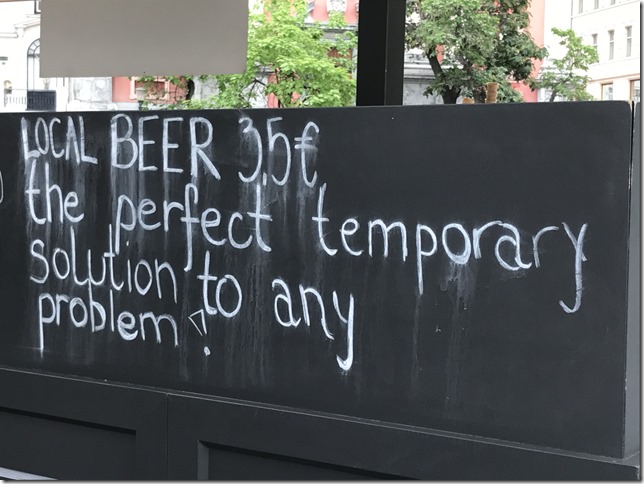 LOCAL BEER 3,5€
the perfect temporary
solution to any
problem!